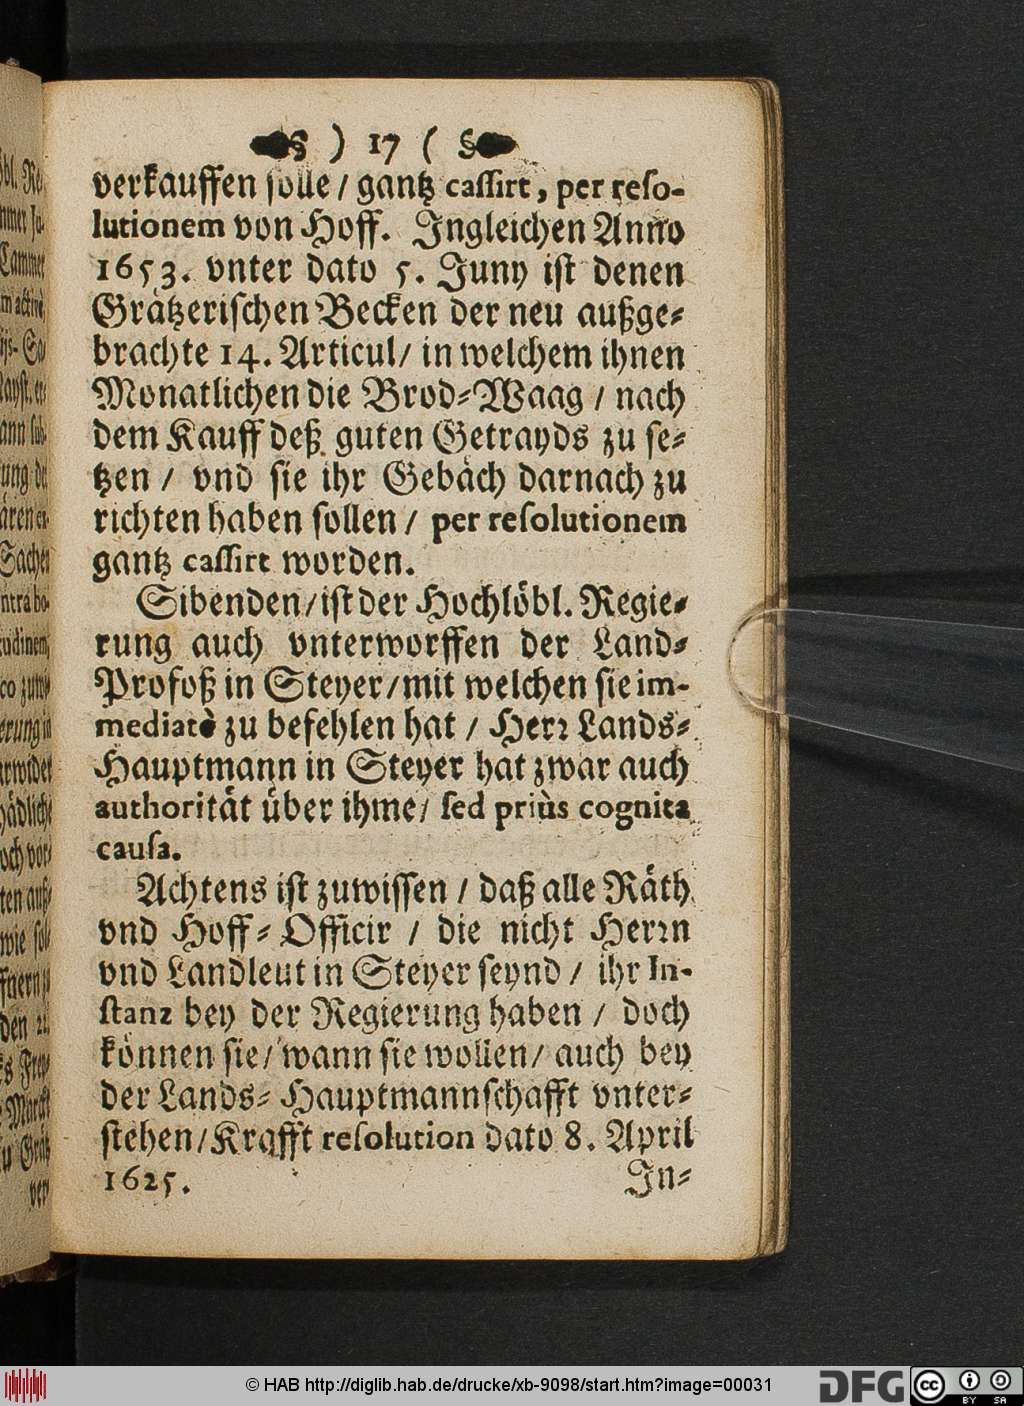 § ) 17 ( §
verkauffen solle / gantz cassirt, per reso-
lutionem von Hoff. Ingleichen Anno
1653. vnter dato 5. Juny ist denen
Grätzerischen Becken der neu außge-
brachte 14. Articul / in welchem ihnen
Monatlichen die Brod-Waag / nach
dem Kauff deß guten Getrayds zu se-
tzen / vnd sie ihr Gebäch darnach zu
richten haben sollen / per resolutionem
gantz cassirt worden.
Sibenden / ist der Hochlöbl. Regie-
rung auch vnterworffen der Land-
Profoß in Steyer / mit welchen sie im-
mediatè zu befehlen hat / Herr Lands-
Hauptmann in Steyer hat zwar auch
authorität über ihme / sed priùs cognita
causa.
Achtens ist zuwissen / daß alle Räth
vnd Hoff-Officir / die nicht Herrn
vnd Landleut in Steyer seynd / ihr In-
stanz bey der Regierung haben / doch
können sie / wann sie wollen / auch bey
der Lands-Hauptmannschafft vnter-
stehen / Krafft resolution dato 8. April
1625. In-
© HAB http://diglib.hab.de/drucke/xb-9098/start.htm?image=00031
DFG
cc BY SA